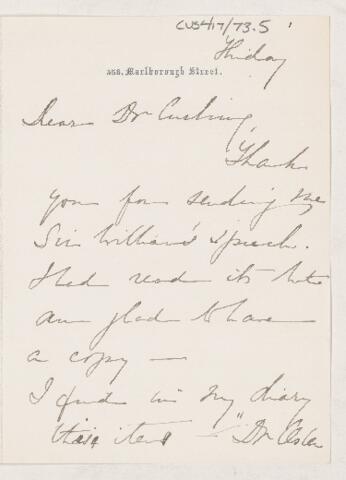 CUS417/73.5
Friday
458, Marlborough Street.
Dear Dr Cushing,
Thank
you for sending me
Sir William's speech.
I had read it but
am glad to have
a copy —
I find in my diary
this item — "Dr Osler